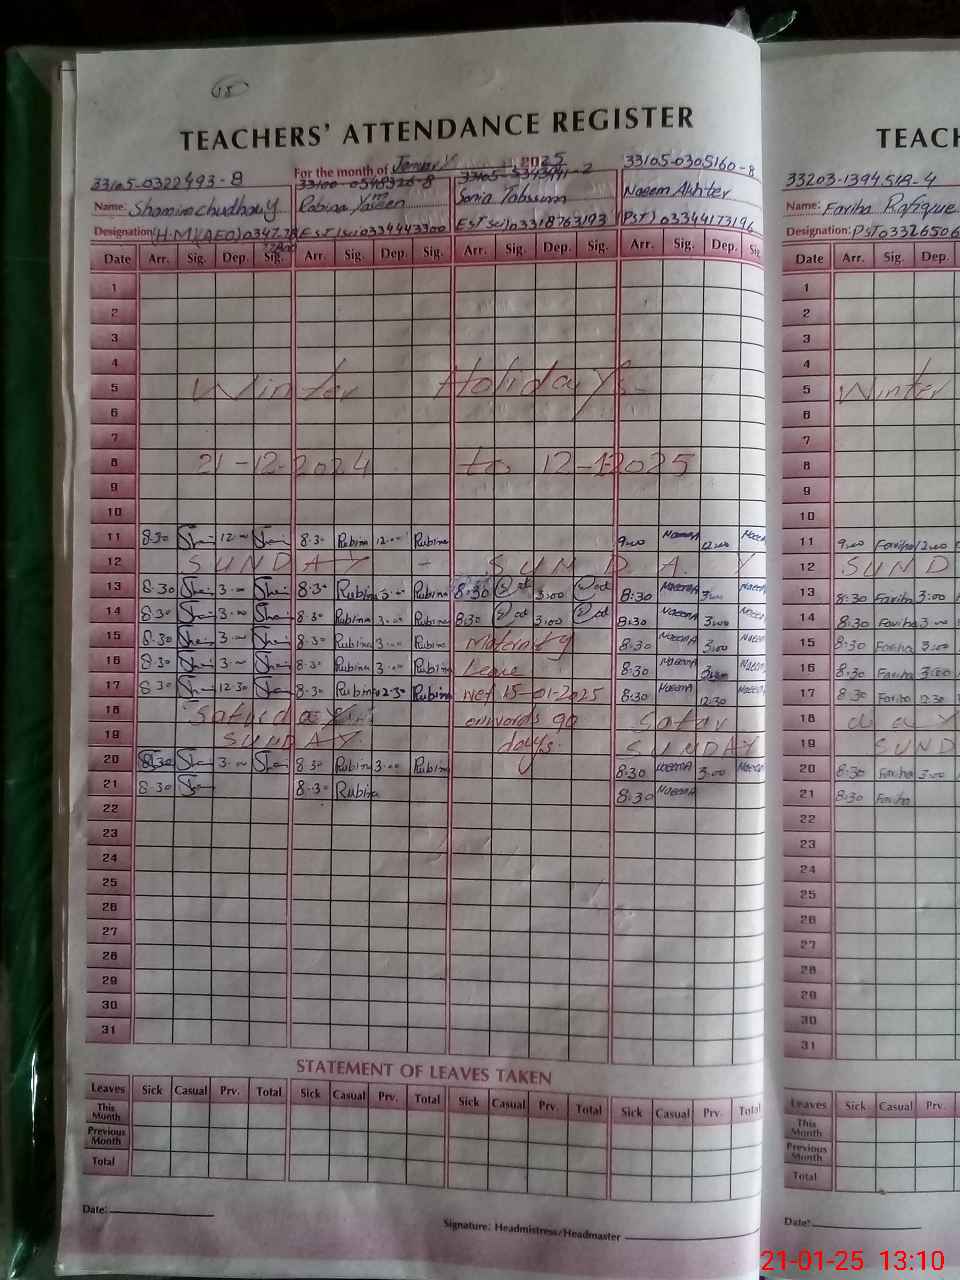 18
TEACHERS' ATTENDANCE REGISTER
For the month of 2025
33105-0322493-8 33100-0548326-8 33105-5343941-2 33105-0305160-8
Name: Shamim chudhary Rabina Yaseen Sonia Tabssum Naeem Akhter
Designation (H.M)(AEO) EST(sci) 03344443300 EST sci) 03318763193 (PST) 03344173196
Date Arr. Sig. Dep. Sig. Arr. Sig. Dep. Sig. Arr. Sig. Dep. Sig. Arr. Sig. Dep. Sig.
1
2
3
4
5 Winter Holidays
6
7
8 21-12-2024 to 12-1-2025
9
10
11 8.30 12.00 8.30 Rubina 12.00 Rubina 9.00 Naeema 12.00
12 SUNDAY - SUNDAY
13 8.30 3.00 8.30 Rubina 3.00 Rubina 8:30 3:00 8:30 Naeema 3:00
14 8.30 3.00 8.30 Rubina 3.00 Rubina 8:30 3:00 8:30 Naeema 3:00
15 8.30 3.00 8.30 Rubina 3.00 Rubina Maternity 8:30 Naeema 3:00
16 8.30 3.00 8.30 Rubina 3.00 Rubina Leave 8:30 Naeema
17 8.30 12.30 8.30 Rubina 12.30 Rubina wef 15-01-2025 8:30 Naeema 12:30
18 onwords 90
19 SUNDAY days. SUNDAY
20 8.30 3.00 8.30 Rubina 3.00 Rubina 8:30 Naeema 3.00
21 8.30 8.30 Rubina 8:30 Naeema
22
23
24
25
26
27
28
29
30
31
STATEMENT OF LEAVES TAKEN
Leaves Sick Casual Prv. Total Sick Casual Prv. Total Sick Casual Prv. Total Sick Casual Prv. Total
This Month
Previous Month
Total
Date:
Signature: Headmistress/Headmaster
TEACH
33203-1394518-4
Name: Fariha Rafique
Designation: PST
Date Arr. Sig. Dep.
1
2
3
4
5 Winter
6
7
8
9
10
11 9.00 Fariha 12.00
12 SUND
13 8:30 Fariha 3:00
14 8:30 Fariha 3.00
15 8:30 Fariha 3:00
16 8.30 Fariha 3:00
17 8:30 Fariha 12.30
18 day
19 SUND
20 8:30 Fariha 3:00
21 8:30 Fariha
22
23
24
25
26
27
28
29
30
31
Leaves Sick Casual Prv.
This Month
Previous Month
Total
Date:
21-01-25 13:10